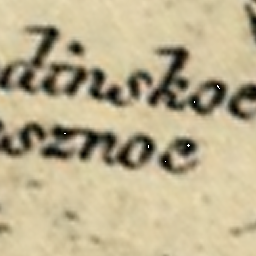 dinskoe
sznoe